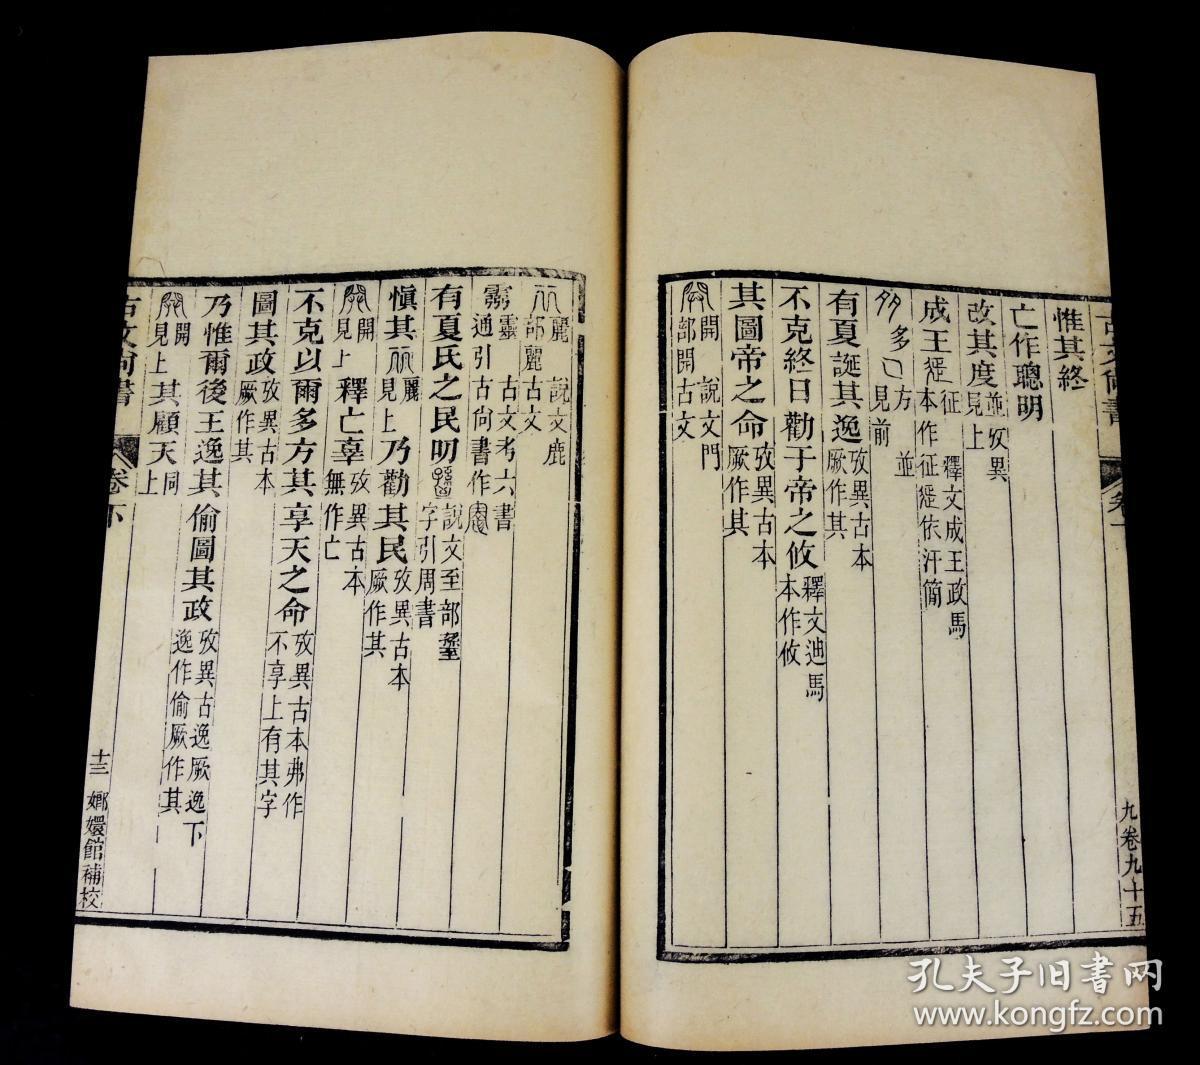 惟其終
亡作聰明
改其度並攷異見上
成王徰征釋文成王政馬本作征徰依汗簡
多方並見前
有夏誕其逸攷異古本厥作其
不克終日勸于帝之攸釋文迪馬本作攸
其圖帝之命攷異古本厥作其
開說文門部開古文
九卷九十五
麗說文鹿部麗古文
靈古文考六書通引古尙書作
有夏氏之民明說文至部字引周書
愼其麗見上乃勸其民攷異古本厥作其
開見上釋亡辜攷異古本無作亡
不克以爾多方其享天之命攷異古本弗作不享上有其字
圖其政攷異古本厥作其
乃惟爾後王逸其偷圖其政攷異古逸厥逸下逸作偷厥作其
開見上其顧天同上
古文尙書
卷下
十三
嫏嬛館補校
孔夫子旧書网
www.kongfz.com